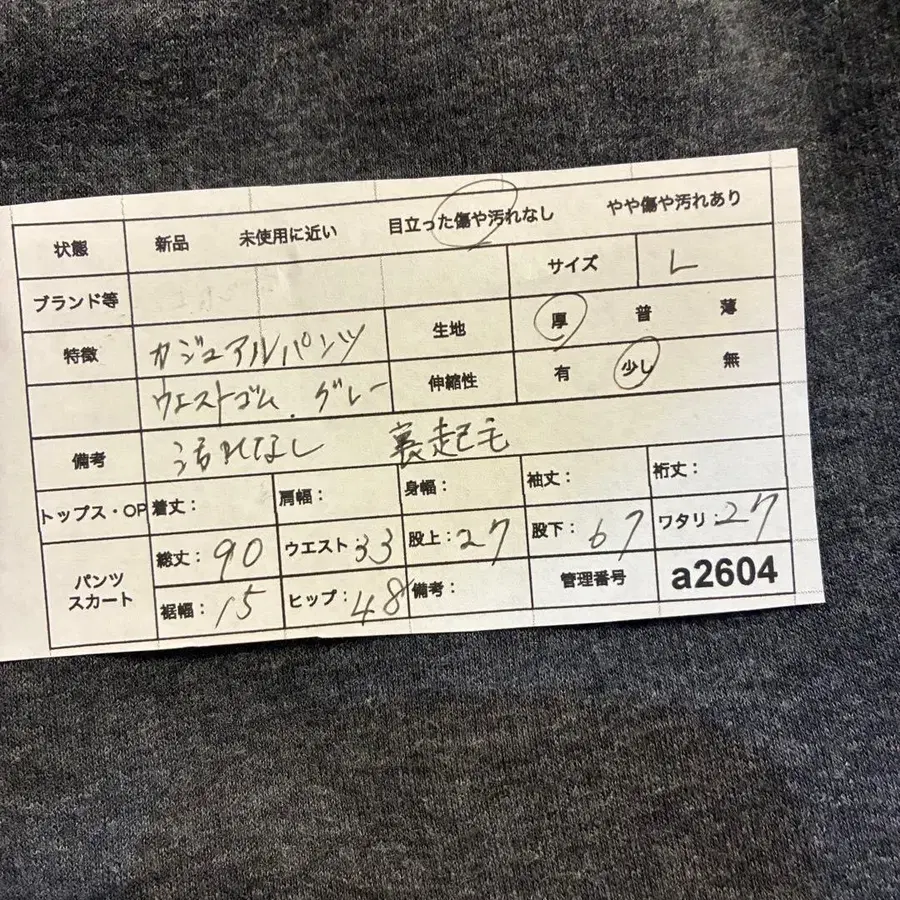 状態 新品 未使用に近い 目立った傷や汚れなし やや傷や汚れあり
ブランド等 サイズ L
特徴 カジュアルパンツ 生地 厚 普 薄
ウエストゴム.グレー 伸縮性 有 少し 無
備考 汚れなし 裏起毛
トップス・OP 着丈: 肩幅: 身幅: 袖丈: 裄丈:
パンツ スカート 総丈:90 ウエスト:33 股上:27 股下:67 ワタリ:27
裾幅:15 ヒップ:48 備考: 管理番号 a2604